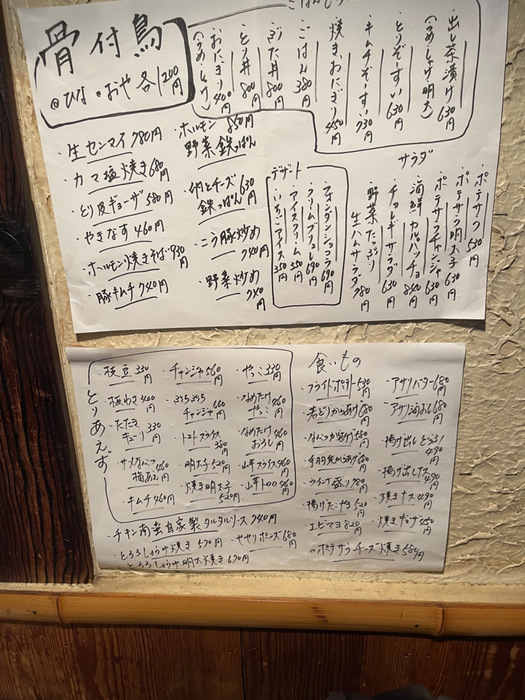 骨付鳥
◎ひな ◎おや 各1200円
ごはんもの
・出し茶漬け 630円
(うめ しゃけ 明太)
・とりぞーすい 630円
・キムチぞーすい 730円
・焼きおにぎり 450円
・ごはん 380円
・ぶた丼 800円
・とり丼 800円
・おにぎり 400円
(うめ しゃけ)
・生センマイ 780円
・カマ塩焼き 680円
・とり皮ギョーザ 580円
・やきなす 460円
・ホルモン焼きそば 930円
・豚キムチ 740円
・ホルモン野菜鉄っぱん 880円
鉄っぱん 630円
740円
・野菜炒め 740円
デザート
・フォンダンショコラ 690円
・クリームブリュレ 690円
・アイスクリーム 350円
・いちごアイス 350円
サラダ
・ポテサラ 530円
・ポテサラ明太子 630円
・ポテサラチャンジャ 630円
・海鮮カルパッチョ 840円
・チョレギサラダ 630円
・野菜たっぷり生ハムサラダ 780円
とりあえず
・枝豆 330円
・板わさ 400円
・たたきキューリ 330円
・サメなんこつ梅あえ 460円
・キムチ 460円
・チャンジャ 560円
チャンジャ 660円
・トマトスライス 350円
・明太子 520円
・焼き明太子 520円
・やっこ 330円
・なめたけやっこ 460円
・なめたけおろし 460円
・山芋フライス 460円
・山芋トロロ 460円
・チキン南蛮自家製タルタルソース 740円
・とろろしょうゆ焼き 570円
・とろろしょうゆ明太焼き 670円
・ヤゲンポンズ 680円
食いもの
・フライドポテト 530円
・若どりから揚げ 680円
・なんこつ揚げ 580円
・手羽先から揚げ 680円
・ウインナ盛り 780円
・揚げたこやき 520円
・エビマヨ 820円
・ポテサラチーズ焼き 580円
・アサリバター 680円
・アサリ酒むし 680円
・揚げ出しとうふ 490円
・揚げ出しナス 490円
・焼きナス 490円
・焼きギョーザ 450円